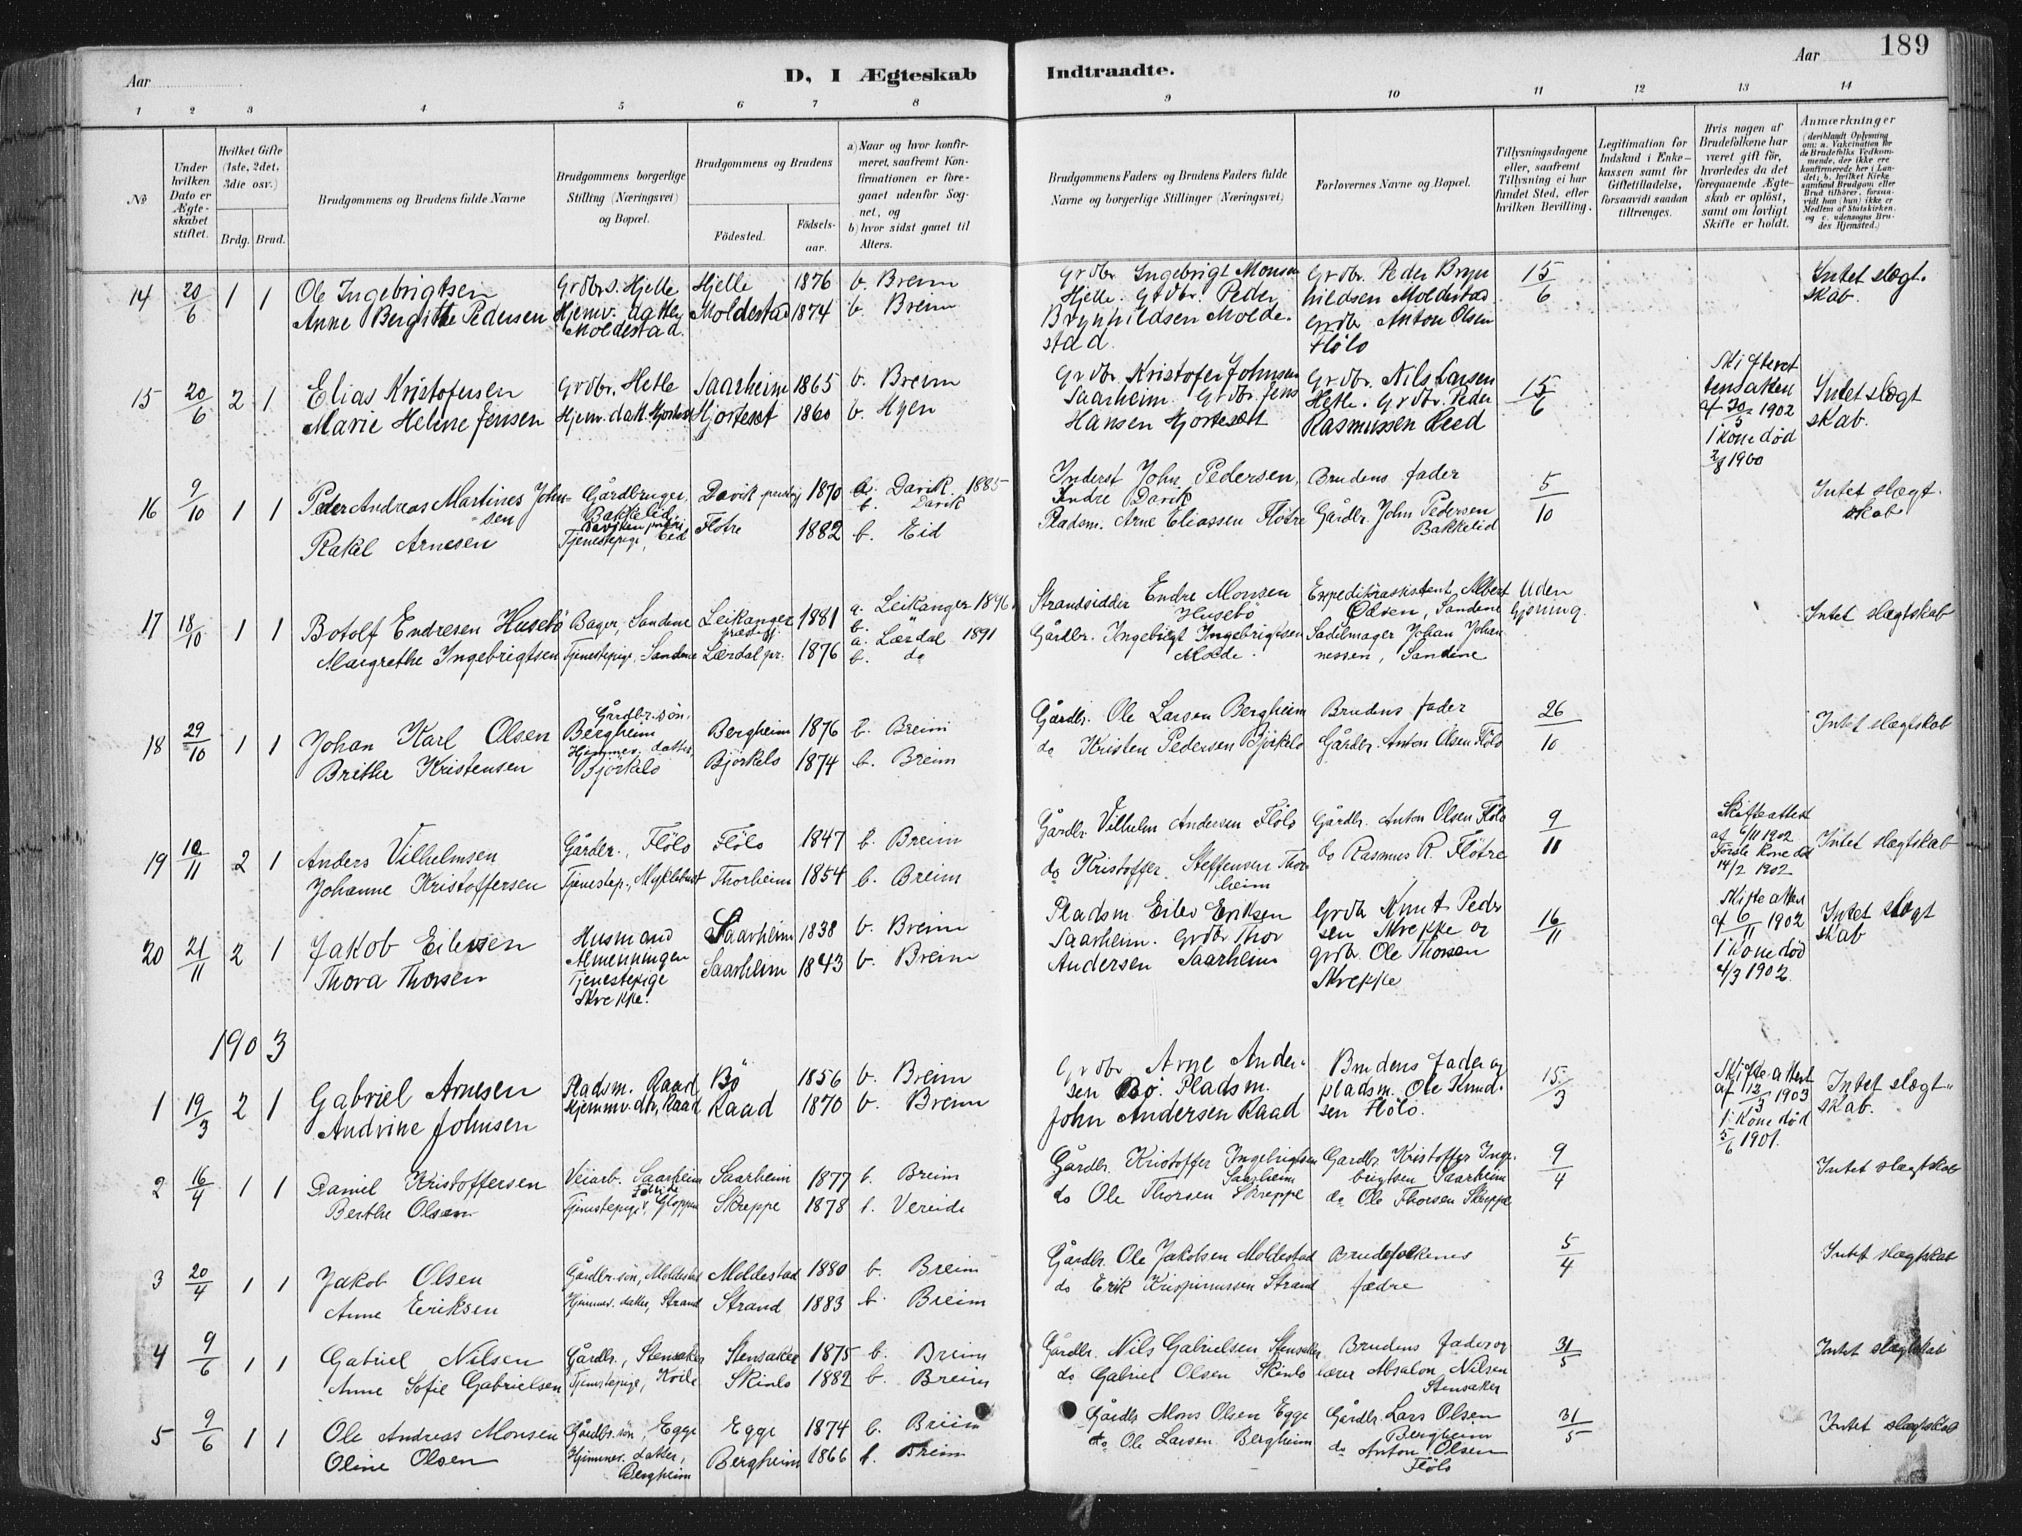 Aar
D, I Ægteskab
Indtraadte.
Aar
189
1 2 3 4 5 6 7 8 9 10 11 12 13 14
№
Under hvilken Dato er Ægteskabet stiftet.
Hvilket Gifte (1ste, 2det, 3die osv.)
Brdg. Brud.
Brudgommens og Brudens fulde Navne
Brudgommens borgerlige Stilling (Næringsvei) og Bopæl.
Brudgommens og Brudens
Fødested.
Fødselsaar.
a) Naar og hvor konfirmeret, saafremt Konfirmationen er foregaaet udenfor Sognet, og
b) hvor sidst gaaet til Alters.
Brudgommens Faders og Brudens Faders fulde Navne og borgerlige Stillinger (Næringsvei)
Forlovernes Navne og Bopæl.
Tillysningsdagene eller, saafremt Tillysning ei har fundet Sted, efter hvilken Bevilling.
Legitimation for Indskud i Enkekassen samt for Giftetilladelse, forsaavidt saadan tiltrænges.
Hvis nogen af Brudefolkene har været gift før, hvorledes da det foregaaende Ægteskab er opløst, samt om lovligt Skifte er holdt.
Anmærkninger
(deriblandt Oplysning om: a. Vakcination for de Brudefolks Vedkommende, der ikke ere konfirmerede her i Landet; b. hvilket Kirkesamfund Brudgom eller Brud tilhører, forsaavidt han (hun) ikke er Medlem af Statskirken, og c. udensogns Brudes Hjemsted.)
14 20/6 1 1 Ole Ingebrigtsen Grdbrs. Hjelle Hjelle 1876 b. Breim
Anne Bergitte Pedersen Hjemv. datter Moldestad Moldestad 1874 b. Breim
Grdbr. Ingebrigt Monsen Hjelle. Grdbr. Peder Brynhildsen Moldestad.
Grdbr. Peder Brynhildsen Moldestad. Grdbr Anton Olsen Flölo
15/6
Intet slægtskab.
15 20/6 2 1 Elias Kristofersen Grdbr. Hetle Saarheim 1865 b. Breim
Marie Heline Jensen Hjemv. datt. Hjorteset Hjorteset 1860 b. Hyen
Grdbr. Kristofer Johnsen Saarheim. Grdbr. Jens Hansen Hjorteset
Grdbr. Nils Larsen Hetle. Grdbr. Peder Rasmussen Reed
15/6
af 30/5 1902 1 kone död 2/8 1900
Intet slægtskab.
16 9/10 1 1 Peder Andreas Martines Johnsen Gårdbruger, Bakkelid Davik præstegj 1870 a. Davik 1885
b. Davik
Rakel Arnesen Tjenestepige, Eid Flötre 1882 b. Eid
Inderst John Pedersen, Indre Davik
Pladsm. Arne Eliassen Flötre
Brudens fader
Gårdbr. John Pedersen Bakkelid
5/10
Intet slægtskab
17 18/10 1 1 Botolf Endresen Husebö Bager, Sandene Leikanger præstegj. 1881 a. Leikanger 1896
b.
Margrethe Ingebrigtsen Tjenestepige, Sandene Lærdal pr. 1876 a. Lærdal 1891
b. do
Strandsidder Endre Monsen Husebö
Gårdbr. Ingebrigt Ingebrigtsen Molde.
Expeditörassistent Albert Olsen, Sandene
Sadelmager Johan Johannessen, Sandene
Uden lysning.
Intet slægtskab
18 29/10 1 1 Johan Karl Olsen Gårdbr.sön, Bergheim Bergheim 1876 b. Breim
Brithe Kristensen Hjemmev. datter, Björkelo Björkelo 1874 b. Breim
Gårdbr. Ole Larsen Bergheim
do Kristen Pedersen Björkelo
Brudens fader
Gårdbr. Anton Olsen Flölo
26/10
Intet slægtskab
19 10/11 2 1 Anders Vilhelmsen Gårdbr., Flölo Flölo 1847 b. Breim
Johanne Kristoffersen Tjenestep., Myklebust Thorheim 1854 b. Breim
Gårdbr Vilhelm Andersen Flölo
do Kristoffer Steffensen Thorheim
Gårdbr. Anton Olsen Flölo
do Rasmus R. Flötre
9/11
Skifteattest af 6/11 1902 Förste kone död 14/2 1902
Intet slægtskab
20 21/11 2 1 Jakob Eilevsen Husmand Almenningen Saarheim 1838 b. Breim
Thora Thorsen Tjenestepige Skrekke. Saarheim 1843 b. Breim
Pladsm. Eilev Eriksen Saarheim. Grdbr Thor Andersen Saarheim
Grdbr Knut Pedersen Skrekke og grdbr. Ole Thorsen Skrekke
16/11
Skifteattest af 6/11 1902 1 kone död 4/3 1902
Intet slægtskab
1903
1 19/3 2 1 Gabriel Arnesen Pladsm. Raad Bö 1856 b. Breim
Andrine Johnsen Hjemmv. dtr, Raad Raad 1870 b. Breim
Grdbr. Arne Andersen Bö. Pladsm. John Andersen Raad
Brudens fader og pladsm. Ole Knudsen Flölo.
15/3
Skifteattest af 12/3 1903 1. kone död 5/6 1901.
Intet slægtskab.
2 16/4 1 1 Daniel Kristoffersen Veiarb. Saarheim Saarheim 1877 b. Breim
Berthe Olsen Tjenestepige, Gloppen Skreppe 1878 b. Vereide
Gårdbr. Kristoffer Ingebrigtsen Saarheim
do Ole Thorsen Skreppe
Gardbr. Kristoffer Ingebrigtsen Saarheim
do Ole Thorsen Skreppe
9/4
Intet slægtskab
3 20/4 1 1 Jakob Olsen Gårdbr.sön, Moldestad Moldestad 1880 b. Breim
Anne Eriksen Hjemmev. datter, Strand Strand 1883 b. Breim
Gårdbr. Ole Jakobsen Moldestad
do Erik Krispinussen Strand
Brudefolkenes fædre
5/4
Intet slægtskab
4 9/6 1 1 Gabriel Nilsen Gårdbr., Stensaker Stensaker 1875 b. Breim
Anne Sofie Gabrielsen Tjenstepige, Skinlo 1882 b. Breim
Gårdbr. Nils Gabrielsen Stensaker
do Gabriel Olsen Skinlo
Brudens fader og lærer Absalon Nilsen Stensaker
31/5
Intet slægtskab
5 9/6 1 1 Ole Andreas Monsen Gårdbr.sön, Egge Egge 1874 b. Breim
Oline Olsen Hjemmev. datter, Bergheim Bergheim 1866 b. Breim
Gårdbr Mons Olsen Egge
do Ole Larsen Bergheim
Gårdbr. Lars Olsen Bergheim
do Anton Olsen Flölo
31/5
Intet slægtskab